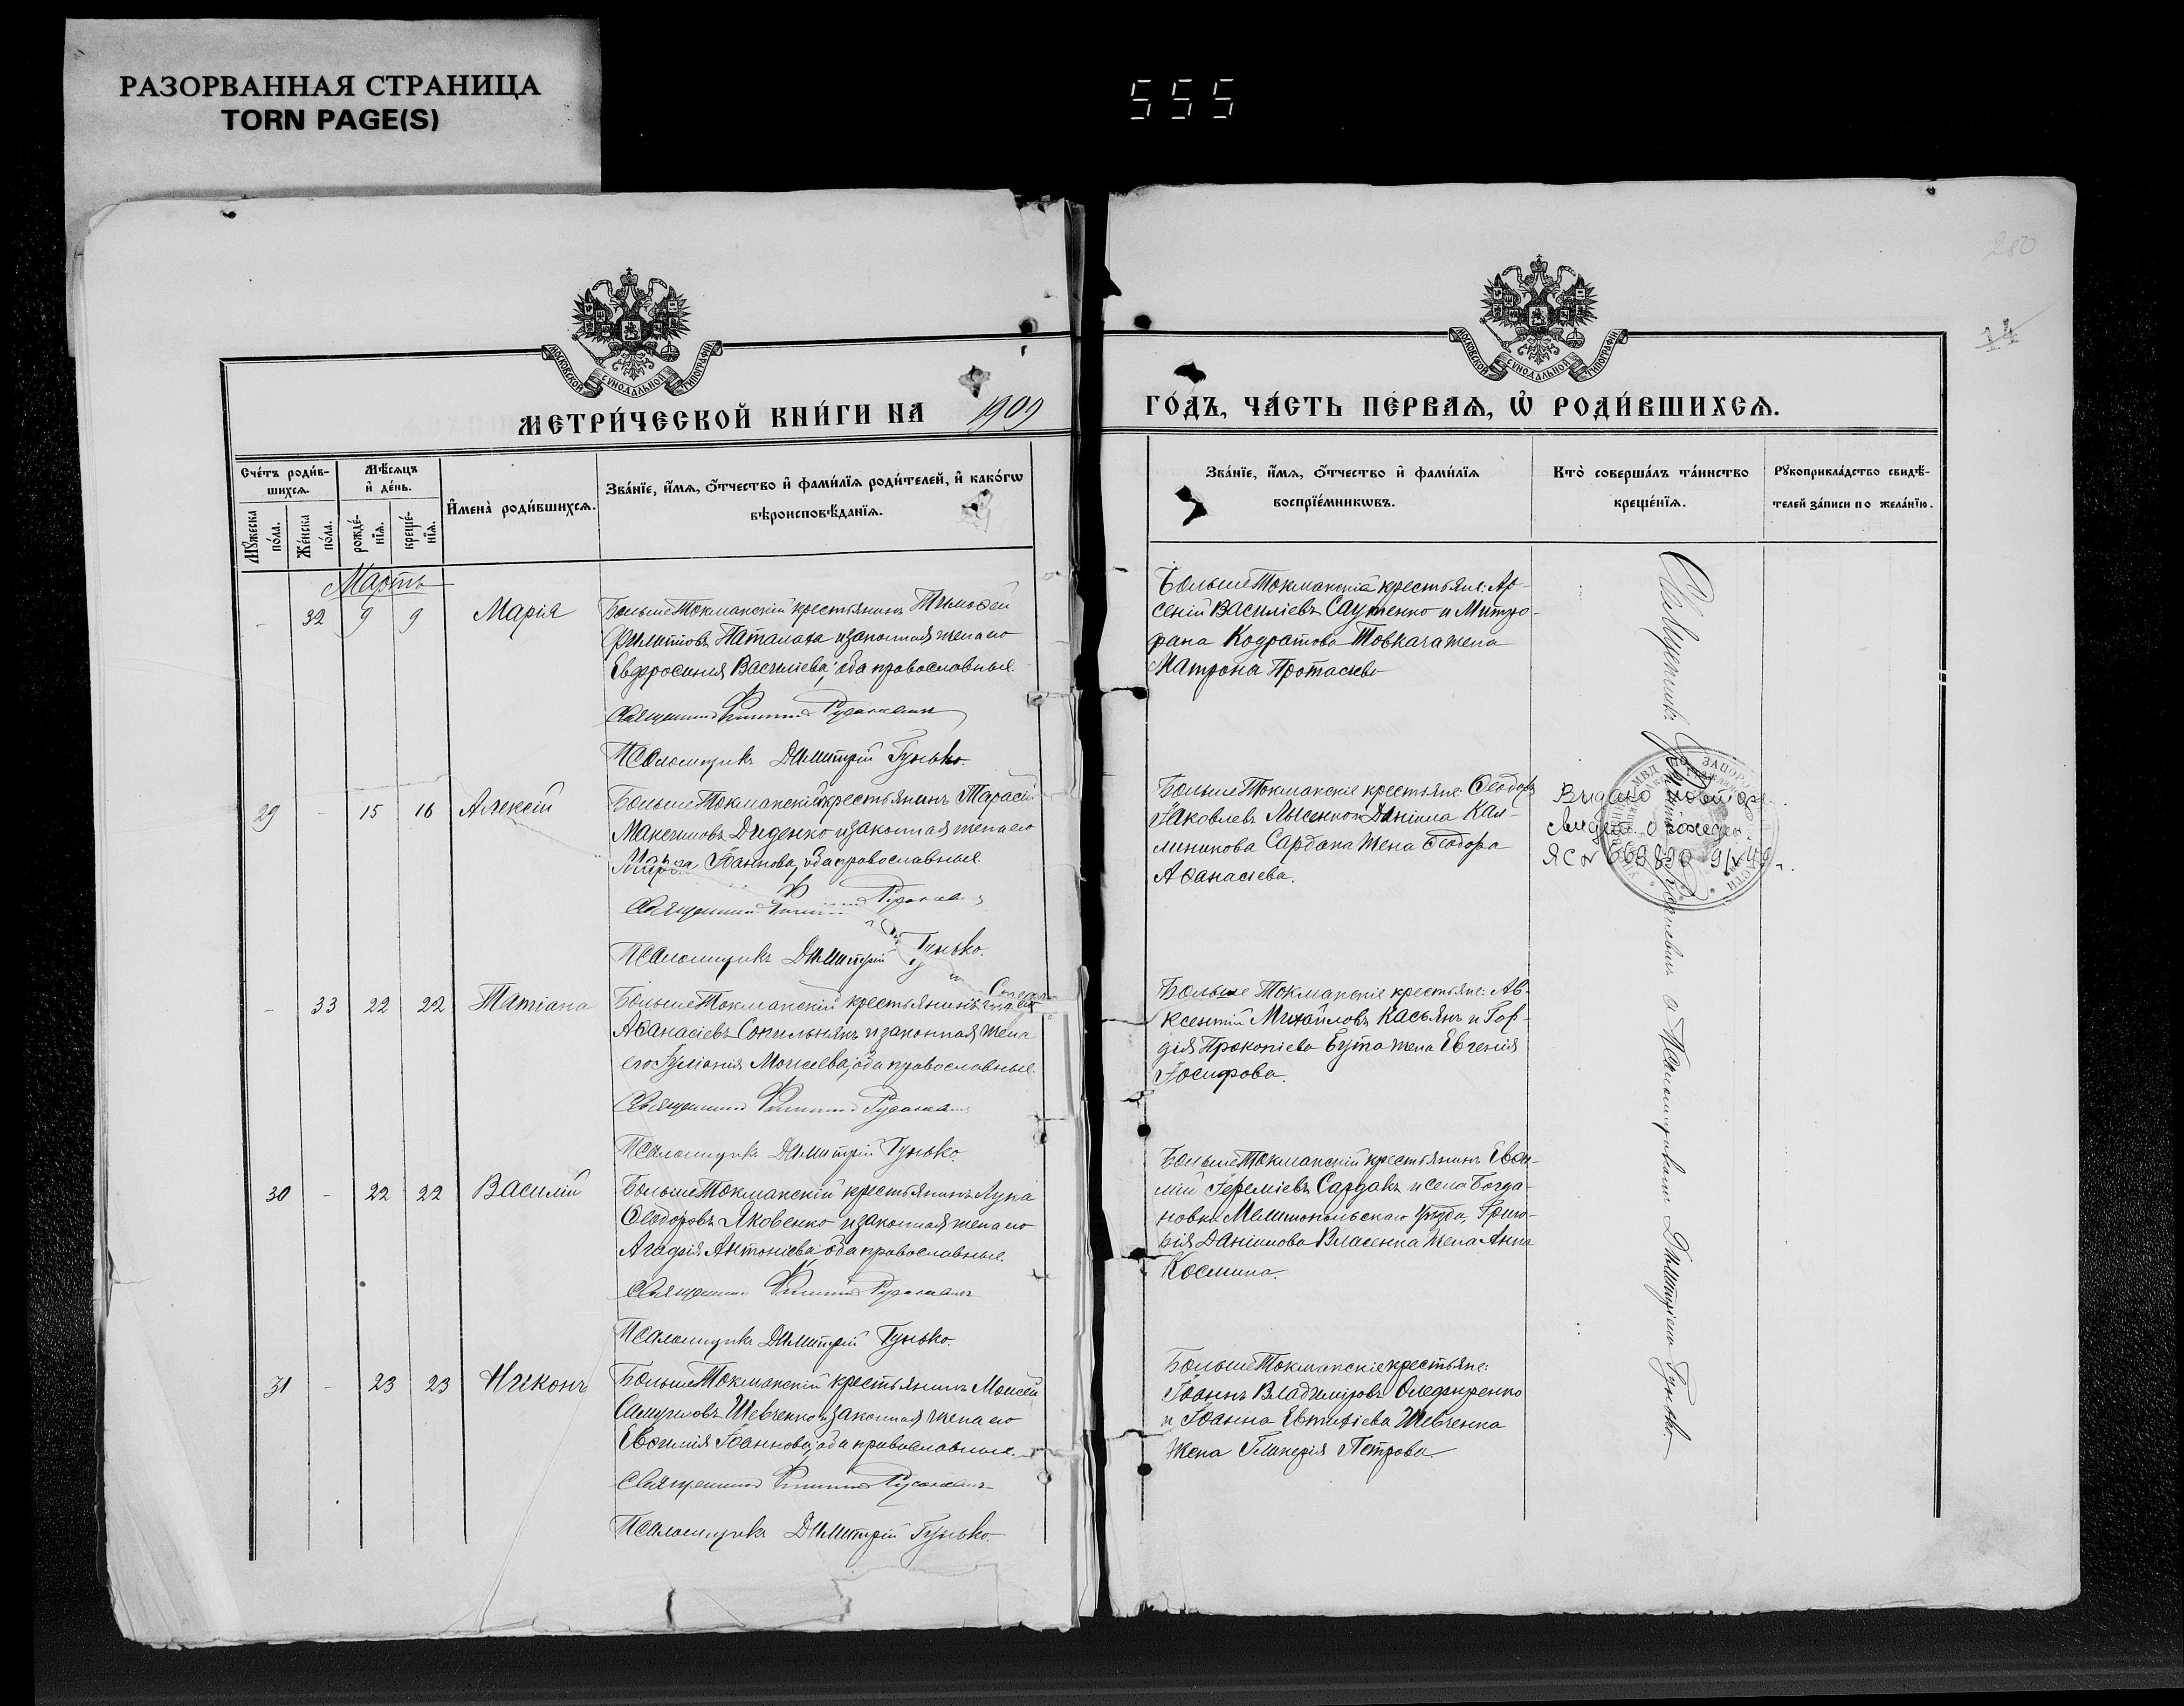 РАЗОРВАННАЯ СТРАНИЦА
TORN PAGE(S)
555
250
14
МОСКОВСКОЙ СѴНОДАЛЬНОЙ ТИПОГРАФІИ
МОСКОВСКОЙ СѴНОДАЛЬНОЙ ТИПОГРАФІИ
МЕТРИ́ЧЕСКОЙ КНИ́ГИ НА 1909
ГО́ДЪ, ЧА́СТЬ ПЕ́РВАѦ, Ѡ҆ РОДИ́ВШИХСѦ.
Сче́тъ роди́в-
шихсѧ.
Мѣ́сѧцъ
и҆ де́нь.
И҆мена̀ роди́вшихсѧ.
Зва́нїе, и҆́мѧ, ѻ҆́тчество и҆ фами́лїѧ роди́телей, и҆ како́гѡ
вѣроисповѣ́данїѧ.
Мꙋ́жеска
по́ла.
Же́нска
по́ла.
рожде́-
нїѧ.
креще́-
нїѧ.
Зва́нїе, и҆́мѧ, ѻ҆́тчество и҆ фами́лїѧ
воспрїе́мникѡвъ.
Кто̀ соверша́лъ та́инство
креще́нїѧ.
Рꙋкоприкла́дство свидѣ́-
телей за́писи по жела́нїю.
Мартъ
- 32 9 9 Марія
БольшеТокмакскій крестьянинъ Тимофей
Филипповъ Паталаха и законная жена его
Евфросинія Васильева; оба православные.
Священникъ
Псаломщикъ Димитрій Гунько.
БольшеТокмакскіе крестьяне: Ар-
сеній Василіевъ Саутенко и Митро-
фана Кодратова Товкача жена
Матрона Протасіева
29 - 15 16 Алексій
БольшеТокмакскій крестьянинъ Тарасій
Диденко и законная жена его
Марѳа Іоаннова, оба православные.
Священникъ
Псаломщикъ Димитрій Гунько.
БольшеТокмакскіе крестьяне: Ѳеодоръ
Іаковлевъ Лысенко и Даніила Кал-
линикова Сардака жена Ѳеодора
Аѳанасіева.
Видано повторе
свидет. о рожден.
ЯС № 660890 9/V 49 г.
- 33 22 22 Татіана
БольшеТокмакскій крестьянинъ
Аѳанасіевъ Сокильнякъ и законная жена
его Іуліанія Моисеева, оба православные.
Священникъ
Псаломщикъ Димитрій Гунько.
Больше Токмакскіе крестьяне: Ав-
ксентій Михайловъ Касьянъ и Гор-
дія Прокопіева Бута жена Евгенія
Іосифова.
30 - 22 22 Василій
БольшеТокмакскій крестьянинъ Лука
Ѳеодоровъ Яковенко и законная жена его
Агафія Антоніева; оба православные.
Священникъ
Псаломщикъ Димитрій Гунько.
БольшеТокмакскій крестьянинъ Евѳи-
мій Іереміевъ Сардакъ и села Богда-
новки Мелитопольскаго уѣзда, Григо-
рія Даніилова Власенка жена Анна
Космина.
31 - 23 23 Никонъ
БольшеТокмакскій крестьянинъ Моисей
Самуиловъ Шевченко и законная жена его
Евѳимія Іоаннова, оба православные.
Священникъ
Псаломщикъ Димитрій Гунько.
БольшеТокмакскіе крестьяне:
Іоаннъ Владиміровъ Олефиренко
и Іоанна Евтихіева Шевченка
жена Гликерія Петрова.
Священникъ
съ Псаломщикомъ Димитріемъ Гунько.